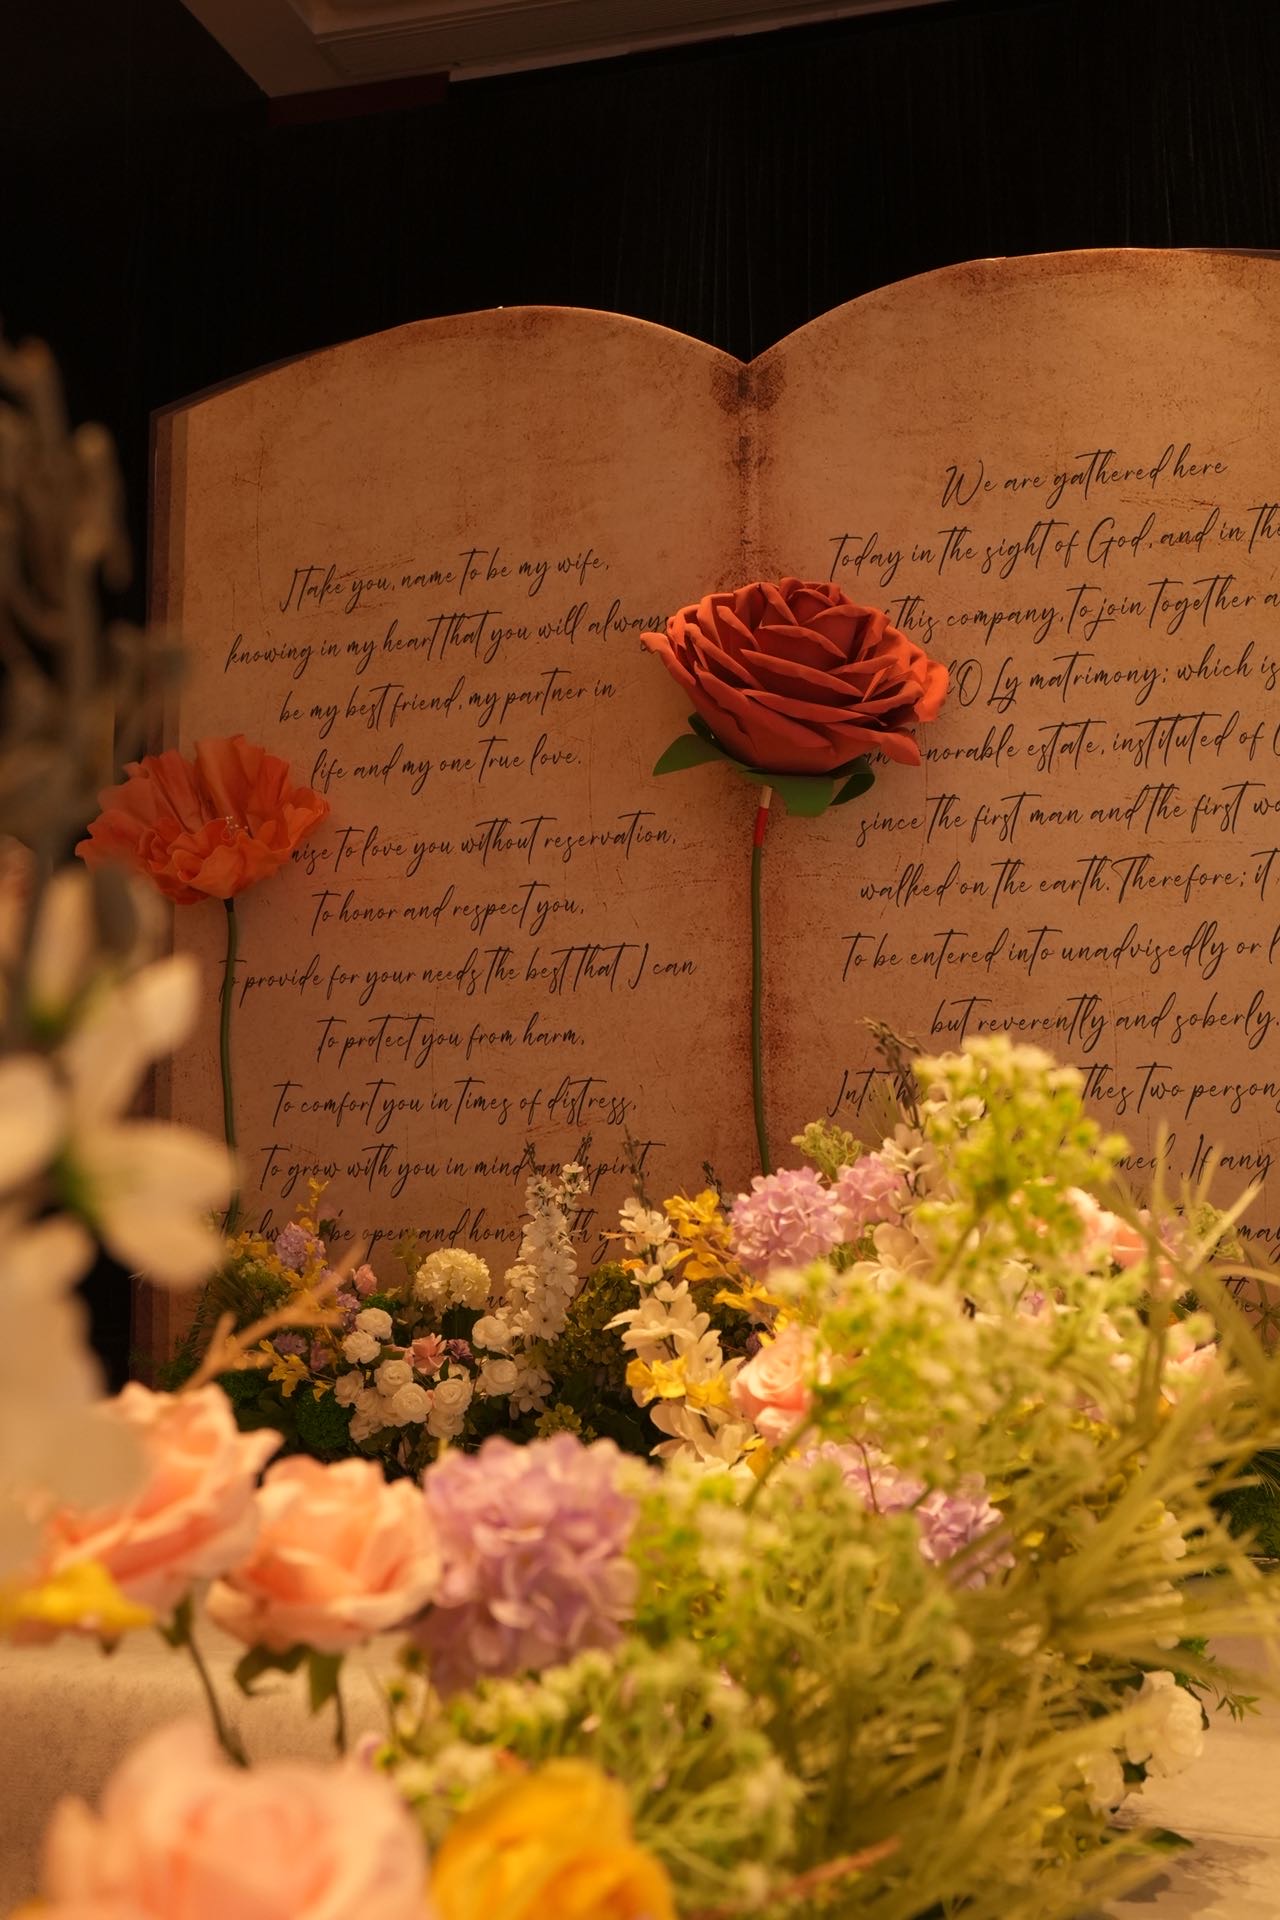 I take you, name to be my wife,
knowing in my heart that you will always
be my best friend, my partner in
life and my one true love.
to love you without reservation,
to honor and respect you,
to provide for your needs the best that I can
to protect you from harm,
to comfort you in times of distress,
to grow with you in mind and spirit,
be open and
We are gathered here
Today in the sight of God, and in the
this company, to join together
Ly matrimony; which is
estate, instituted of
since the first man and the first
walked on the earth. Therefore; it
to be entered into unadvisedly or
but reverently and soberly.
thes two persons
If any
may